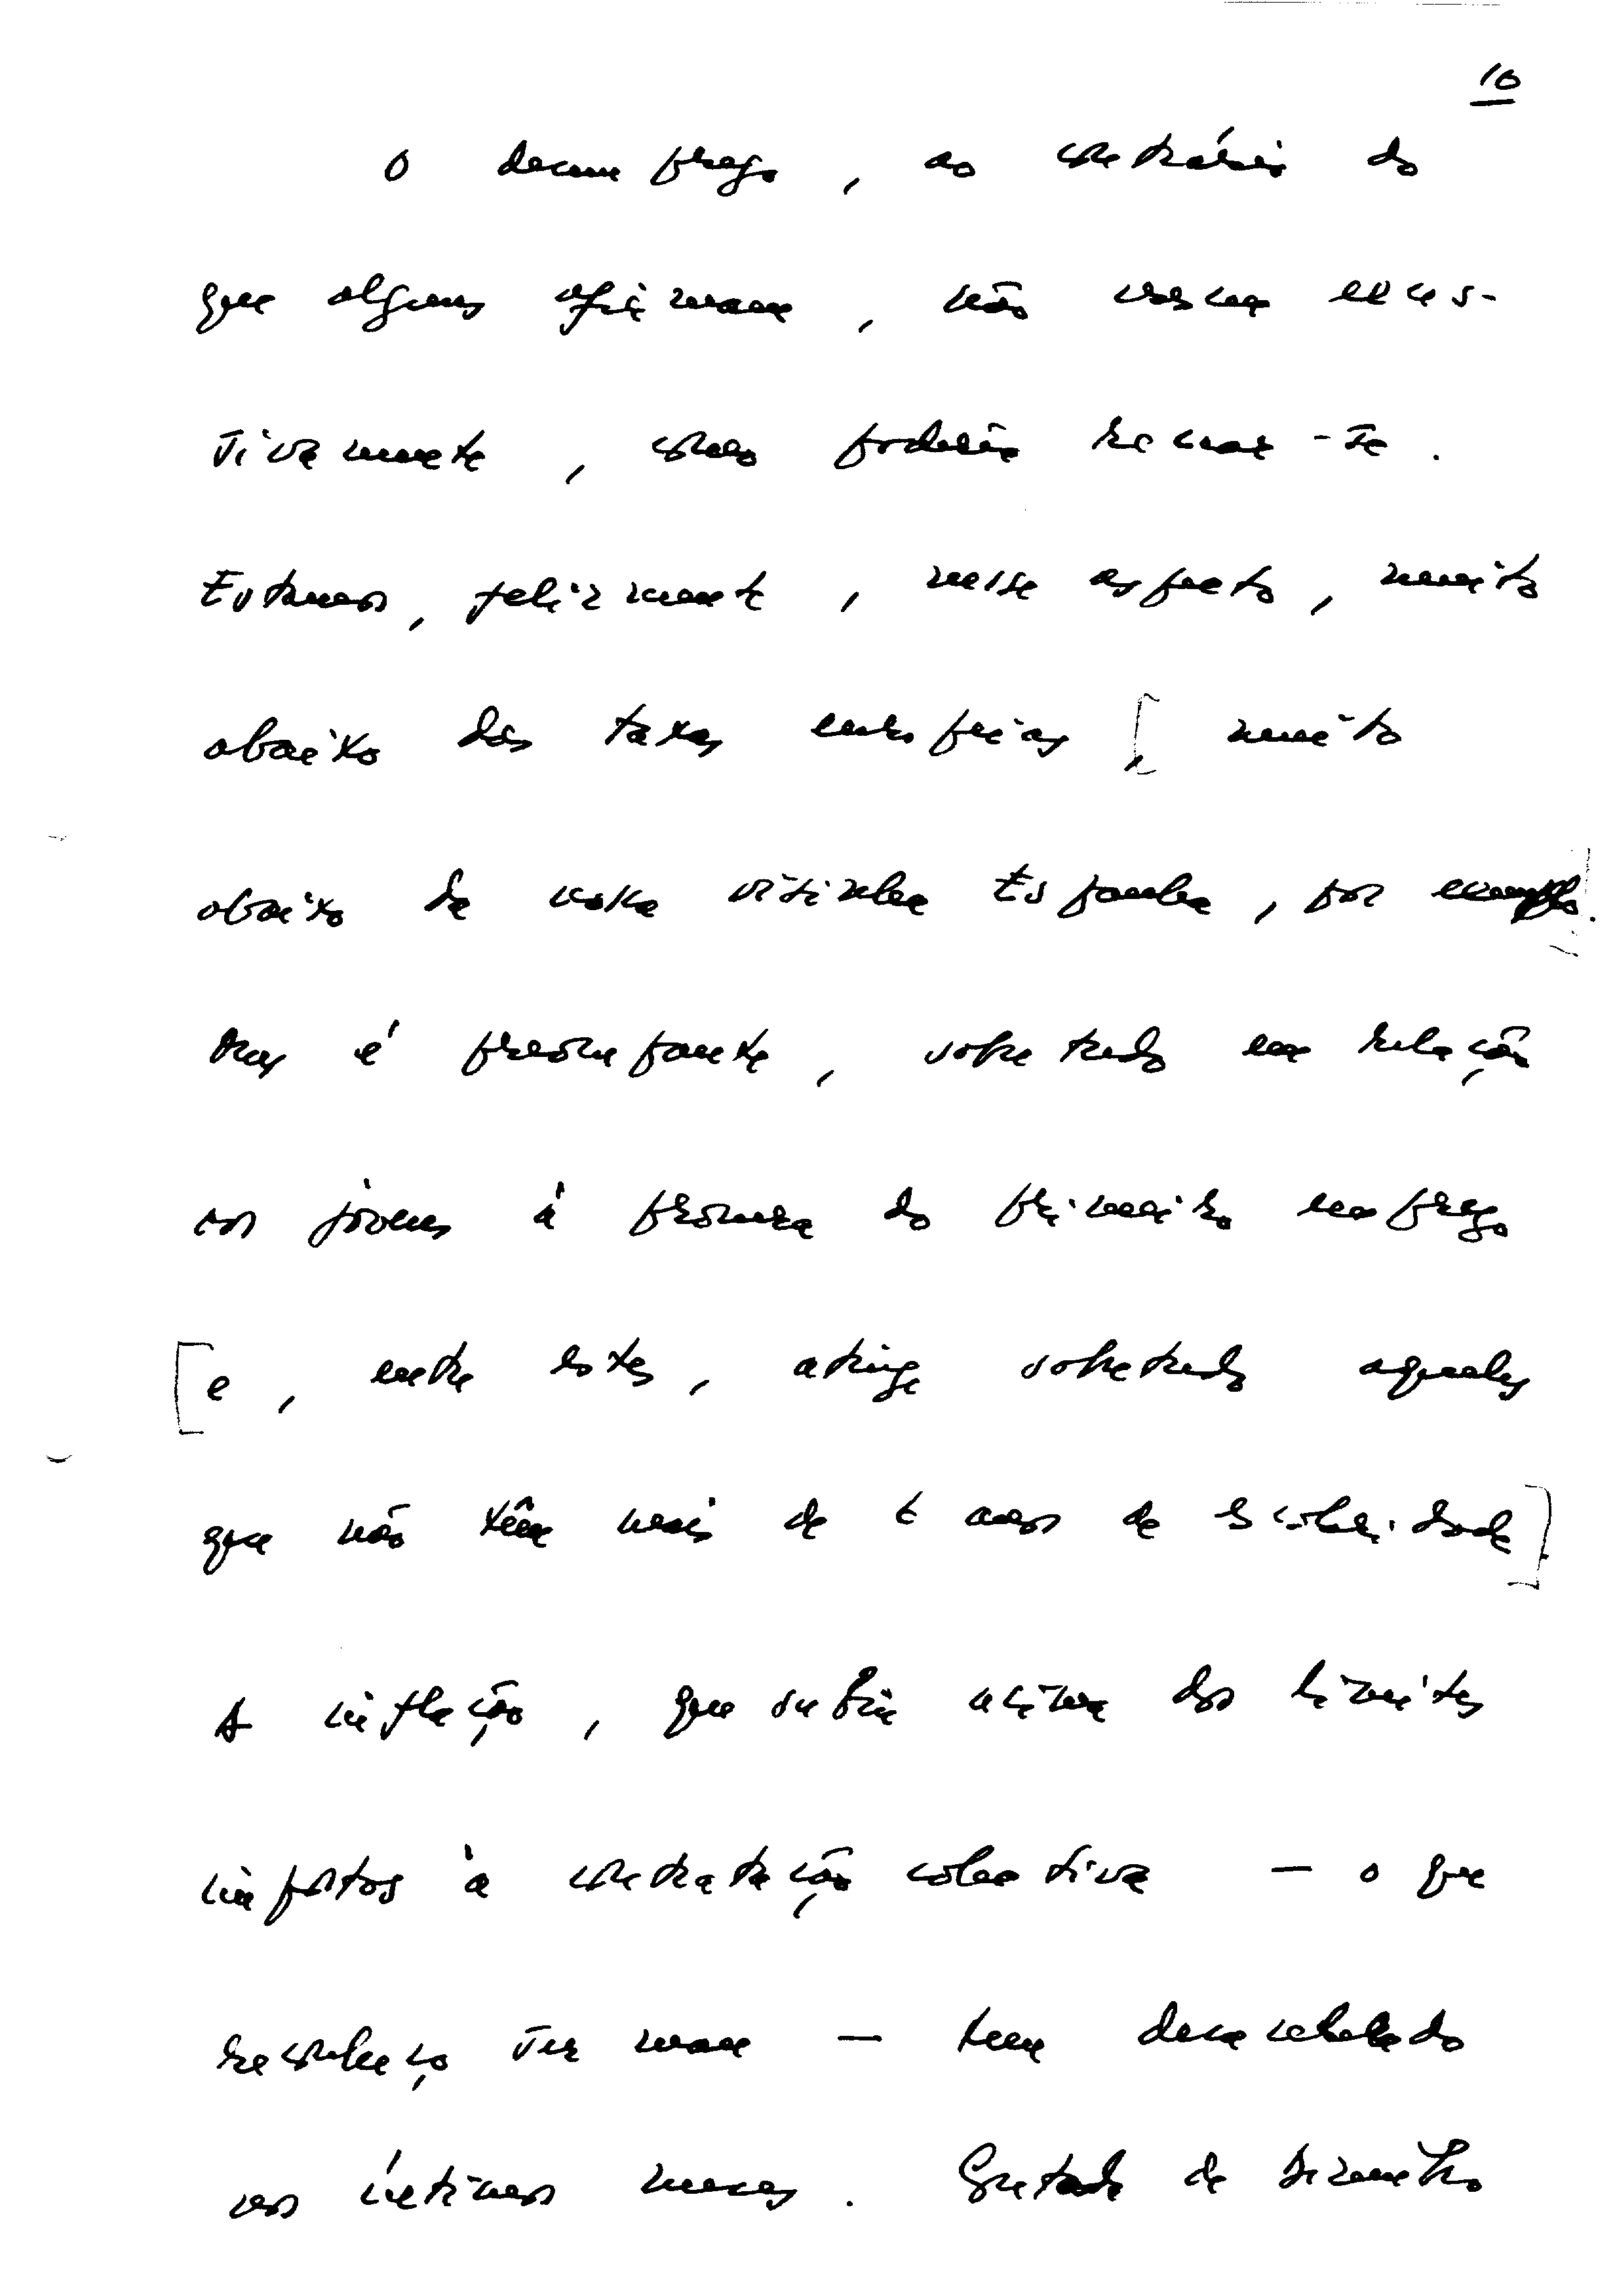 10
O desemprego, ao contrário do
que alguns afirmam, não cresceu exces-
sivamente, como poderia recear-se.
Estamos, felizmente, nesse aspecto, muito
abaixo das taxas europeias [, muito
abaixo da nossa vizinha Espanha, por exemplo].
Mas é preocupante, sobretudo em relação
aos jovens à procura do primeiro emprego
[e, entre estes, atinge sobretudo aqueles
que não têm mais de 6 anos de escolaridade].
A inflação, que subia acima dos limites
impostos à contratação colectiva — o que
reconheço ser mau — tem desacelerado
nos últimos meses. Gostado de Dezembro